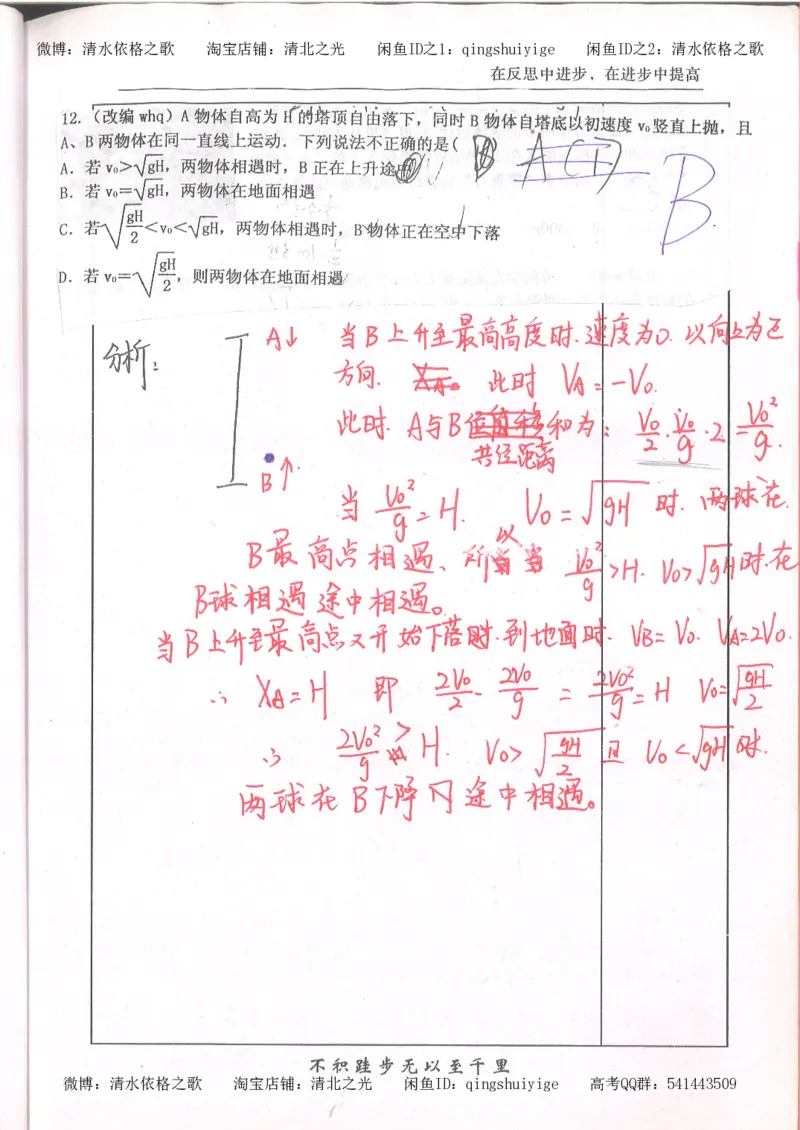 微博：清水依格之歌 淘宝店铺：清北之光 闲鱼ID之1：qingshuiyige 闲鱼ID之2：清水依格之歌
在反思中进步，在进步中提高
12.（改编whq）A物体自高为H的塔顶自由落下，同时B物体自塔底以初速度v₀竖直上抛，且
A、B两物体在同一直线上运动．下列说法不正确的是(
A (T)
B.
A．若v₀＞√gH，两物体相遇时，B正在上升途中
B．若v₀=√gH，两物体在地面相遇
C．若√(gH/2)＜v₀＜√gH，两物体相遇时，B物体正在空中下落
D．若v₀=√(gH/2)，则两物体在地面相遇
分析：
A↓ 当B上升至最高高度时.速度为0.以向上为正
方向. 此时 VA=-V₀.
此时.A与B共位距离和为：V₀/2·V₀/g·2=V₀²/g.
B↑.
当 V₀²/g=H. V₀=√gH 时.两球在
B最高点相遇、所以当 V₀²/g>H. V₀>√gH时.在
B球相遇途中相遇。
当B上升至最高点又开始下落时.到地面时. VB=V₀. VA=2V₀.
∴ XA=H 即 2V₀/2·2V₀/g=2V₀²/g=H V₀=√(gH/2)
∴ 2V₀²/g>H. V₀>√(gH/2) 且 V₀<√gH时.
两球在B下降的途中相遇。
不积跬步无以至千里
微博：清水依格之歌 淘宝店铺：清北之光 闲鱼ID：qingshuiyige 高考QQ群：541443509